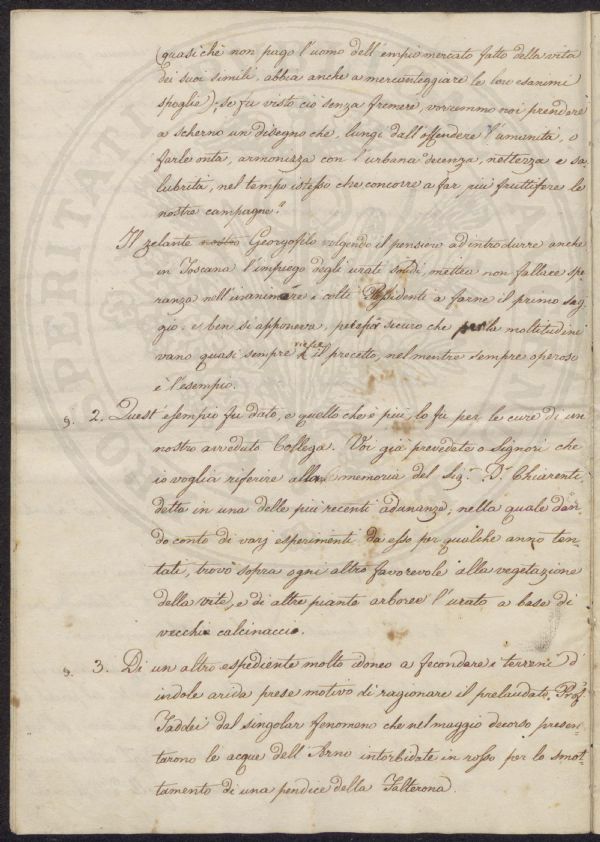 (quasichè non pago l'uomo dell'empio mercato fatto della vita
dei suoi simili, abbia anche a mercanteggiare le loro esanimi
spoglie); se fu visto ciò senza fremere, vorremmo noi prendere
a scherno un disegno che, lungi dall'offendere l'umanità, o
farle onta, armonizza con l'urbana decenza, nettezza e sa-
lubrità, nel tempo istesso che concorre a far più fruttifere le
nostre campagne."
Il zelante nostro Georgofilo volgendo il pensiero ad introdurre anche
in Toscana l'impiego degli urati solidi, mettea non fallace spe-
ranza nell'inanimare i colti Possidenti a farne il primo sag-
gio, e ben si apponeva, sicuro che per la moltitudine
vano quasi sempre riesce il precetto, nel mentre sempre operoso
è l'esempio.
§. 2. Quest'esempio fu dato, e quello che è più lo fu per le cure di un
nostro avveduto Collega. Voi già prevedete o Signori che
io voglia riferire alla memoria del Sig.r D.r Chiarenti
detta in una delle più recenti adunanze, nella quale dan-
do conto di varj esperimenti da esso per qualche anno ten-
tati, trovò sopra ogni altro favorevole alla vegetazione
della vite, e di altre piante arboree l'urato a base di
vecchio calcinaccio.
§. 3. Di un altro espediente molto idoneo a fecondare i terreni d'
indole arida prese motivo di ragionare il prelaudato Prof.
Taddei dal singolar fenomeno che nel maggio decorso presen-
tarono le acque dell'Arno intorbidate in rosso per lo smot-
tamento di una pendice della Falterona.